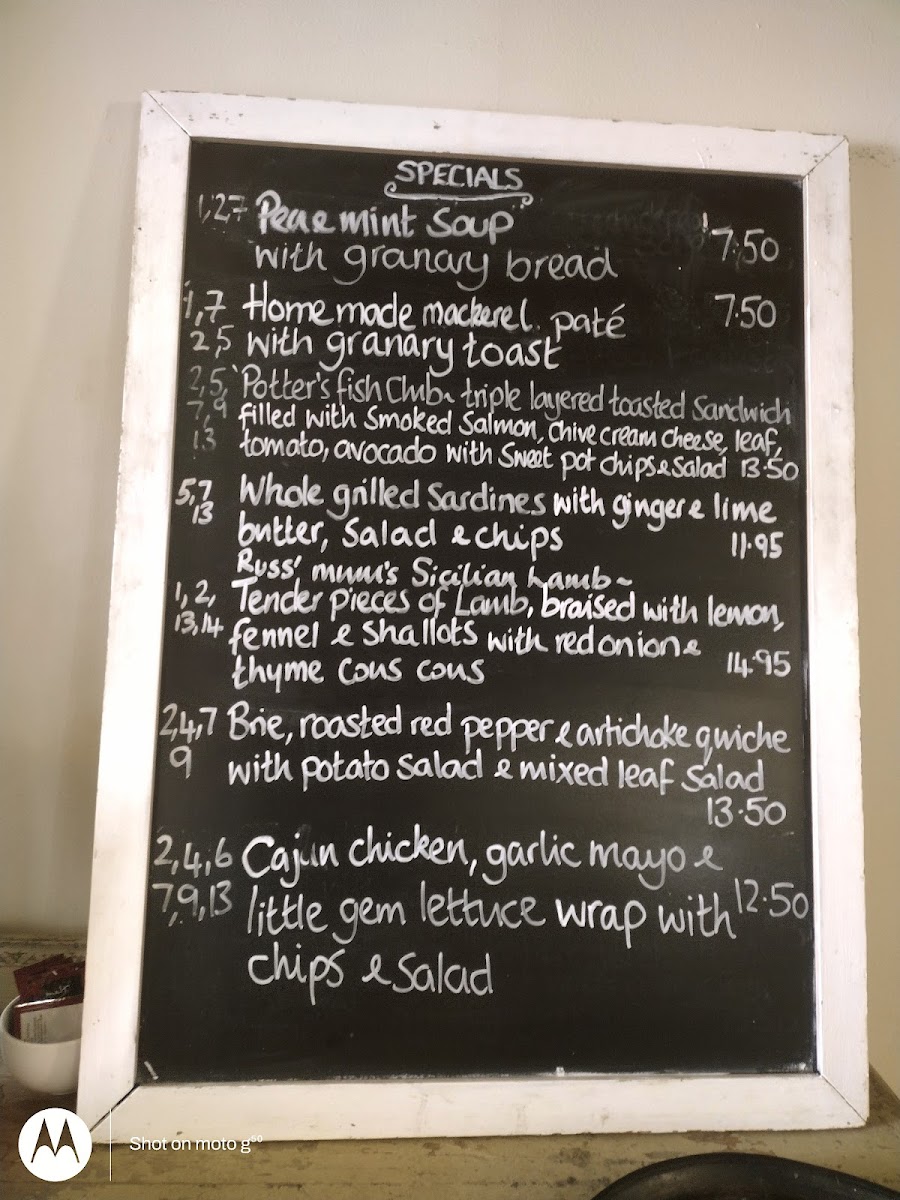 SPECIALS
1,27 Pea e mint Soup
with granary bread 7.50
1,7 Home made mackerel paté 7.50
2,5 with granary toast
2,5, Potter's fish Club~ triple layered toasted Sandwich
7,9 filled with Smoked Salmon, Chive cream cheese, leaf,
13 tomato, avocado with Sweet pot chips e Salad 13.50
5,7 Whole grilled Sardines with ginger e lime
13 butter, Salad e chips 11.95
Russ' mum's Sicilian Lamb~
1, 2, Tender pieces of Lamb, braised with lemon,
13,14 fennel e Shallots with red onion e
thyme Cous cous 14.95
2,4,7 Brie, roasted red pepper e artichoke quiche
9 with potato Salad e mixed leaf Salad
13.50
2,4,6 Cajun chicken, garlic mayo e
7,9,13 little gem lettuce wrap with 12.50
chips e Salad
Shot on moto g⁶⁰